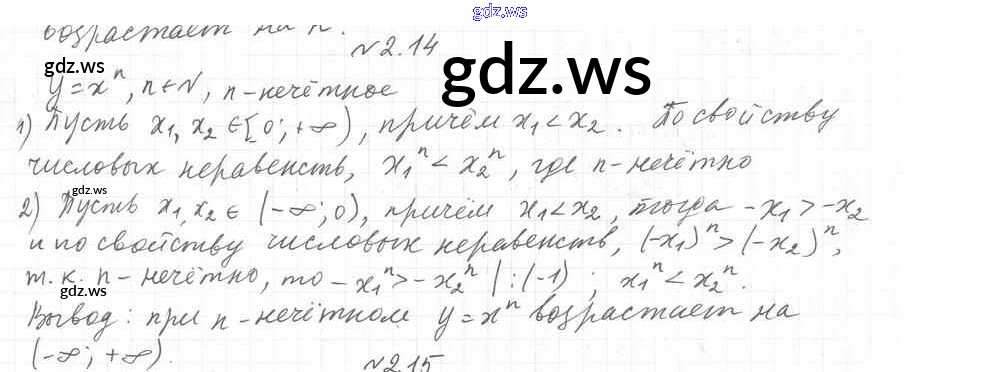 gdz.ws
возрастает на R.
№2.14
gdz.ws
gdz.ws
y=xⁿ, n∈N, n-нечётное
1) Пусть x₁, x₂ ∈ [0; +∞), причём x₁ < x₂. По свойству
числовых неравенств, x₁ⁿ < x₂ⁿ, где n-нечётно
gdz.ws
2) Пусть x₁, x₂ ∈ (-∞; 0), причём x₁ < x₂, тогда -x₁ > -x₂
и по свойству числовых неравенств, (-x₁)ⁿ > (-x₂)ⁿ,
т.к. n - нечётно, то -x₁ⁿ > -x₂ⁿ | :(-1) ; x₁ⁿ < x₂ⁿ.
gdz.ws
Вывод: при n-нечётном y=xⁿ возрастает на
(-∞; +∞).
№2.15